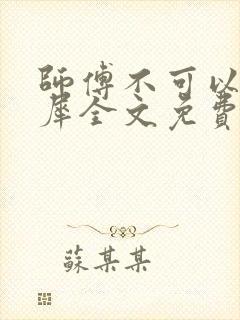 師傅不可以
犀全文免費
蘇某某